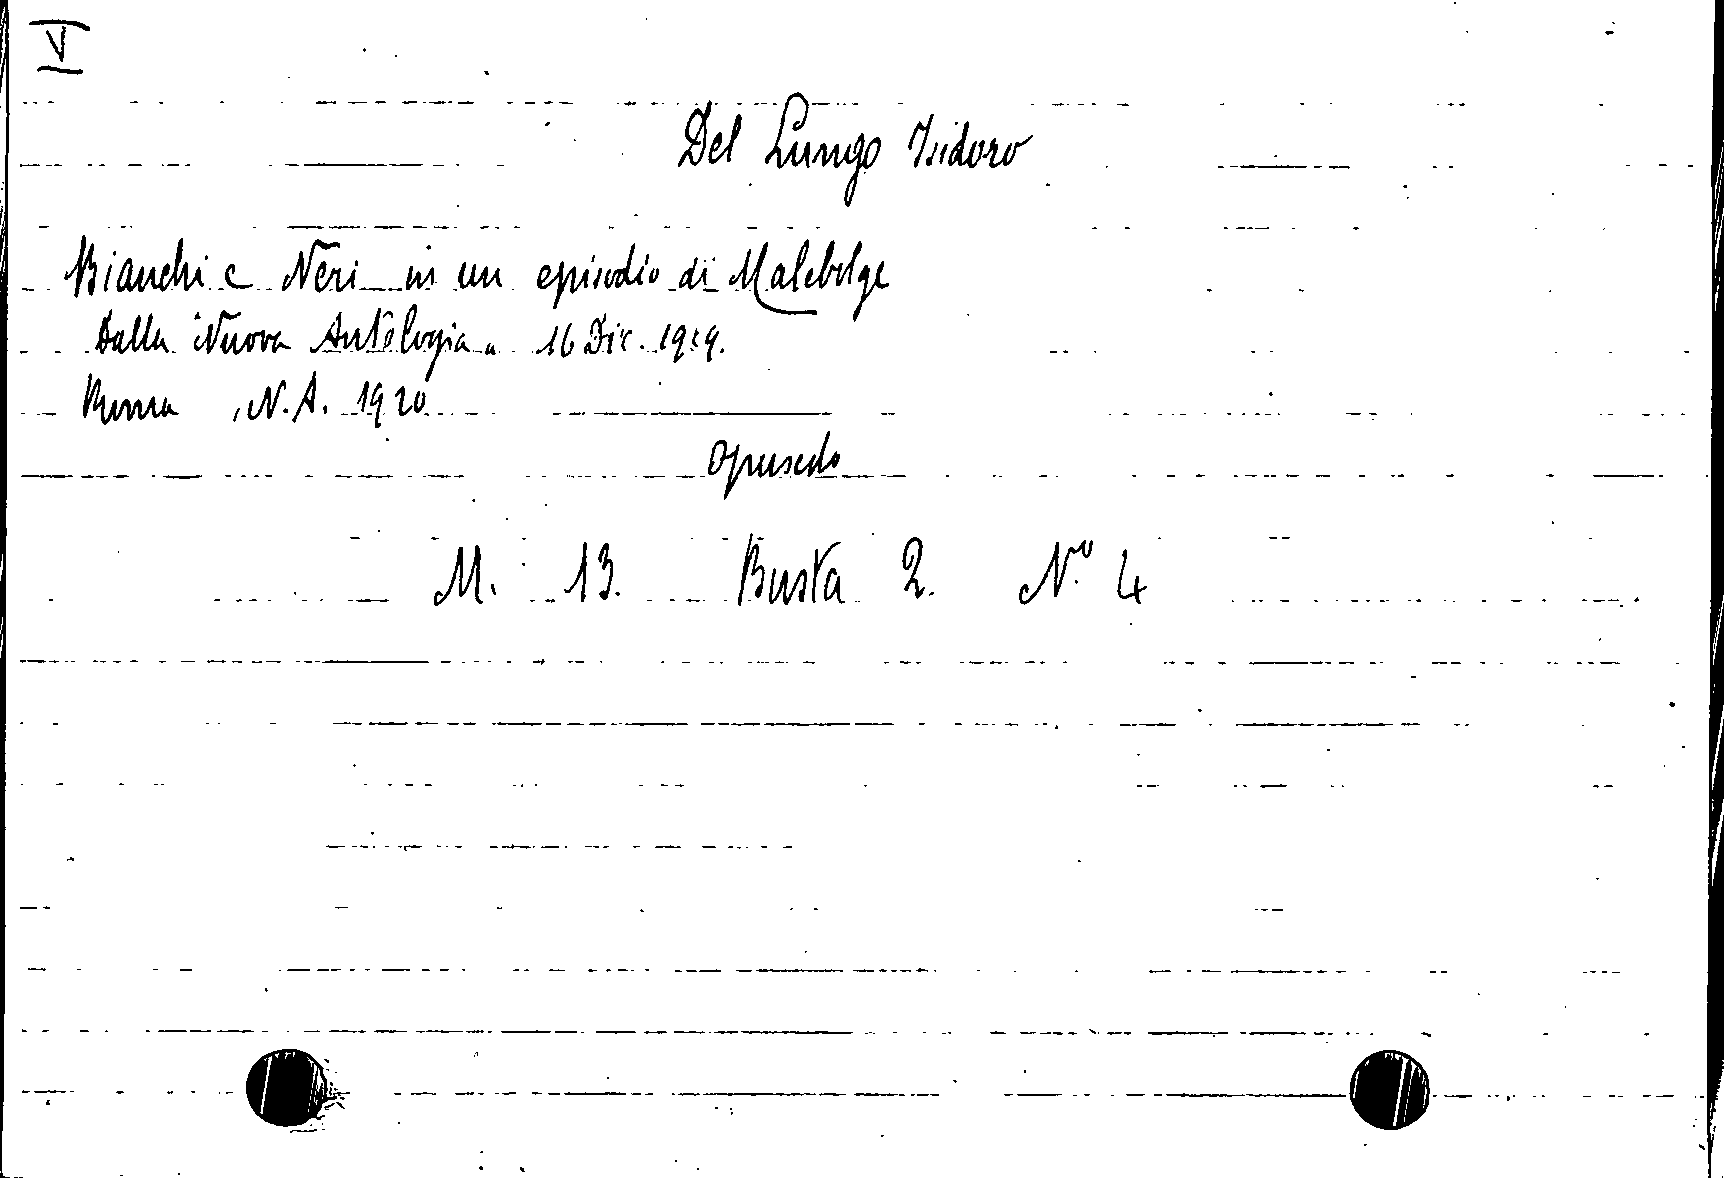 Del Lungo Isidoro
Bianchi e Neri in un episodio di Malebolge
Dalla "Nuova Antologia" 16 Dic. 1919.
Roma, N.A. 1920
Opuscolo
M. 13. Busta 2. Nº 4